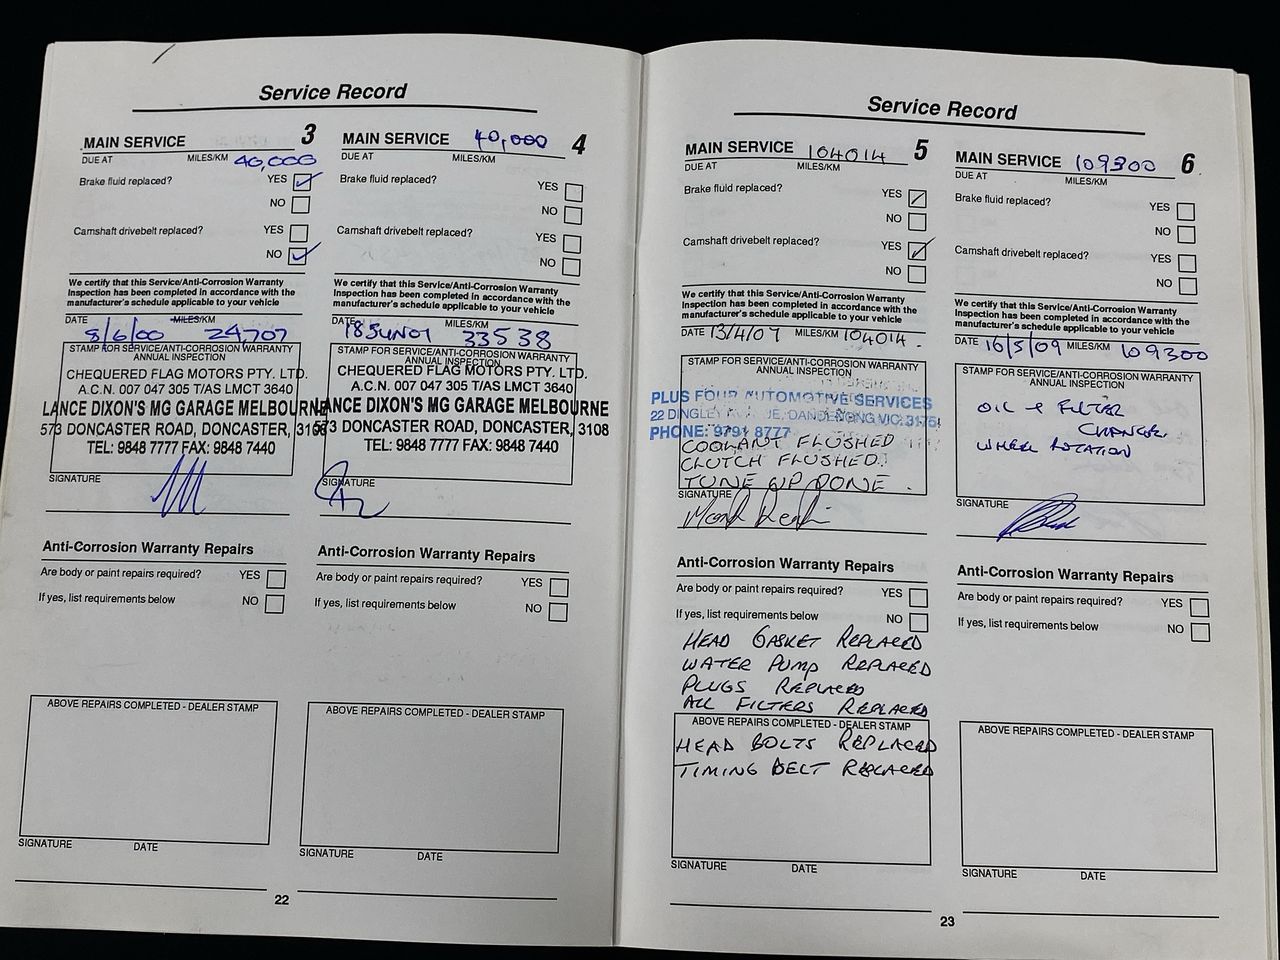 Service Record
MAIN SERVICE 3
DUE AT MILES/KM 40,000
Brake fluid replaced? YES
NO
Camshaft drivebelt replaced? YES
NO
We certify that this Service/Anti-Corrosion Warranty
Inspection has been completed in accordance with the
manufacturer's schedule applicable to your vehicle
DATE 8/6/00 MILES/KM 24,707
STAMP FOR SERVICE/ANTI-CORROSION WARRANTY
ANNUAL INSPECTION
CHEQUERED FLAG MOTORS PTY. LTD.
A.C.N. 007 047 305 T/AS LMCT 3640
LANCE DIXON'S MG GARAGE MELBOURNE
573 DONCASTER ROAD, DONCASTER, 3108
TEL: 9848 7777 FAX: 9848 7440
SIGNATURE
Anti-Corrosion Warranty Repairs
Are body or paint repairs required? YES
If yes, list requirements below NO
ABOVE REPAIRS COMPLETED - DEALER STAMP
SIGNATURE DATE
MAIN SERVICE 40,000 4
DUE AT MILES/KM
Brake fluid replaced? YES
NO
Camshaft drivebelt replaced? YES
NO
We certify that this Service/Anti-Corrosion Warranty
Inspection has been completed in accordance with the
manufacturer's schedule applicable to your vehicle
DATE 18 JUN 01 MILES/KM 33538
STAMP FOR SERVICE/ANTI-CORROSION WARRANTY
ANNUAL INSPECTION
CHEQUERED FLAG MOTORS PTY. LTD.
A.C.N. 007 047 305 T/AS LMCT 3640
LANCE DIXON'S MG GARAGE MELBOURNE
573 DONCASTER ROAD, DONCASTER, 3108
TEL: 9848 7777 FAX: 9848 7440
SIGNATURE
Anti-Corrosion Warranty Repairs
Are body or paint repairs required? YES
If yes, list requirements below NO
ABOVE REPAIRS COMPLETED - DEALER STAMP
SIGNATURE DATE
22
Service Record
MAIN SERVICE 104014 5
DUE AT MILES/KM
Brake fluid replaced? YES
NO
Camshaft drivebelt replaced? YES
NO
We certify that this Service/Anti-Corrosion Warranty
Inspection has been completed in accordance with the
manufacturer's schedule applicable to your vehicle
DATE 13/4/07 MILES/KM 104014.
STAMP FOR SERVICE/ANTI-CORROSION WARRANTY
ANNUAL INSPECTION
PLUS FOUR AUTOMOTIVE SERVICES
22 DINGLEY AVENUE, DANDENONG VIC. 3175
PHONE: 9791 8777
COOLANT FLUSHED
CLUTCH FLUSHED.
TUNE UP DONE.
SIGNATURE
Anti-Corrosion Warranty Repairs
Are body or paint repairs required? YES
If yes, list requirements below NO
HEAD GASKET REPLACED
WATER PUMP REPLACED
PLUGS REPLACED
ALL FILTERS REPLACED
ABOVE REPAIRS COMPLETED - DEALER STAMP
HEAD BOLTS REPLACED
TIMING BELT REPLACED
SIGNATURE DATE
MAIN SERVICE 109300 6
DUE AT MILES/KM
Brake fluid replaced? YES
NO
Camshaft drivebelt replaced? YES
NO
We certify that this Service/Anti-Corrosion Warranty
Inspection has been completed in accordance with the
manufacturer's schedule applicable to your vehicle
DATE 16/5/09 MILES/KM 109300
STAMP FOR SERVICE/ANTI-CORROSION WARRANTY
ANNUAL INSPECTION
OIL + FILTER
CHANGE.
WHEEL ROTATION
SIGNATURE
Anti-Corrosion Warranty Repairs
Are body or paint repairs required? YES
If yes, list requirements below NO
ABOVE REPAIRS COMPLETED - DEALER STAMP
SIGNATURE DATE
23